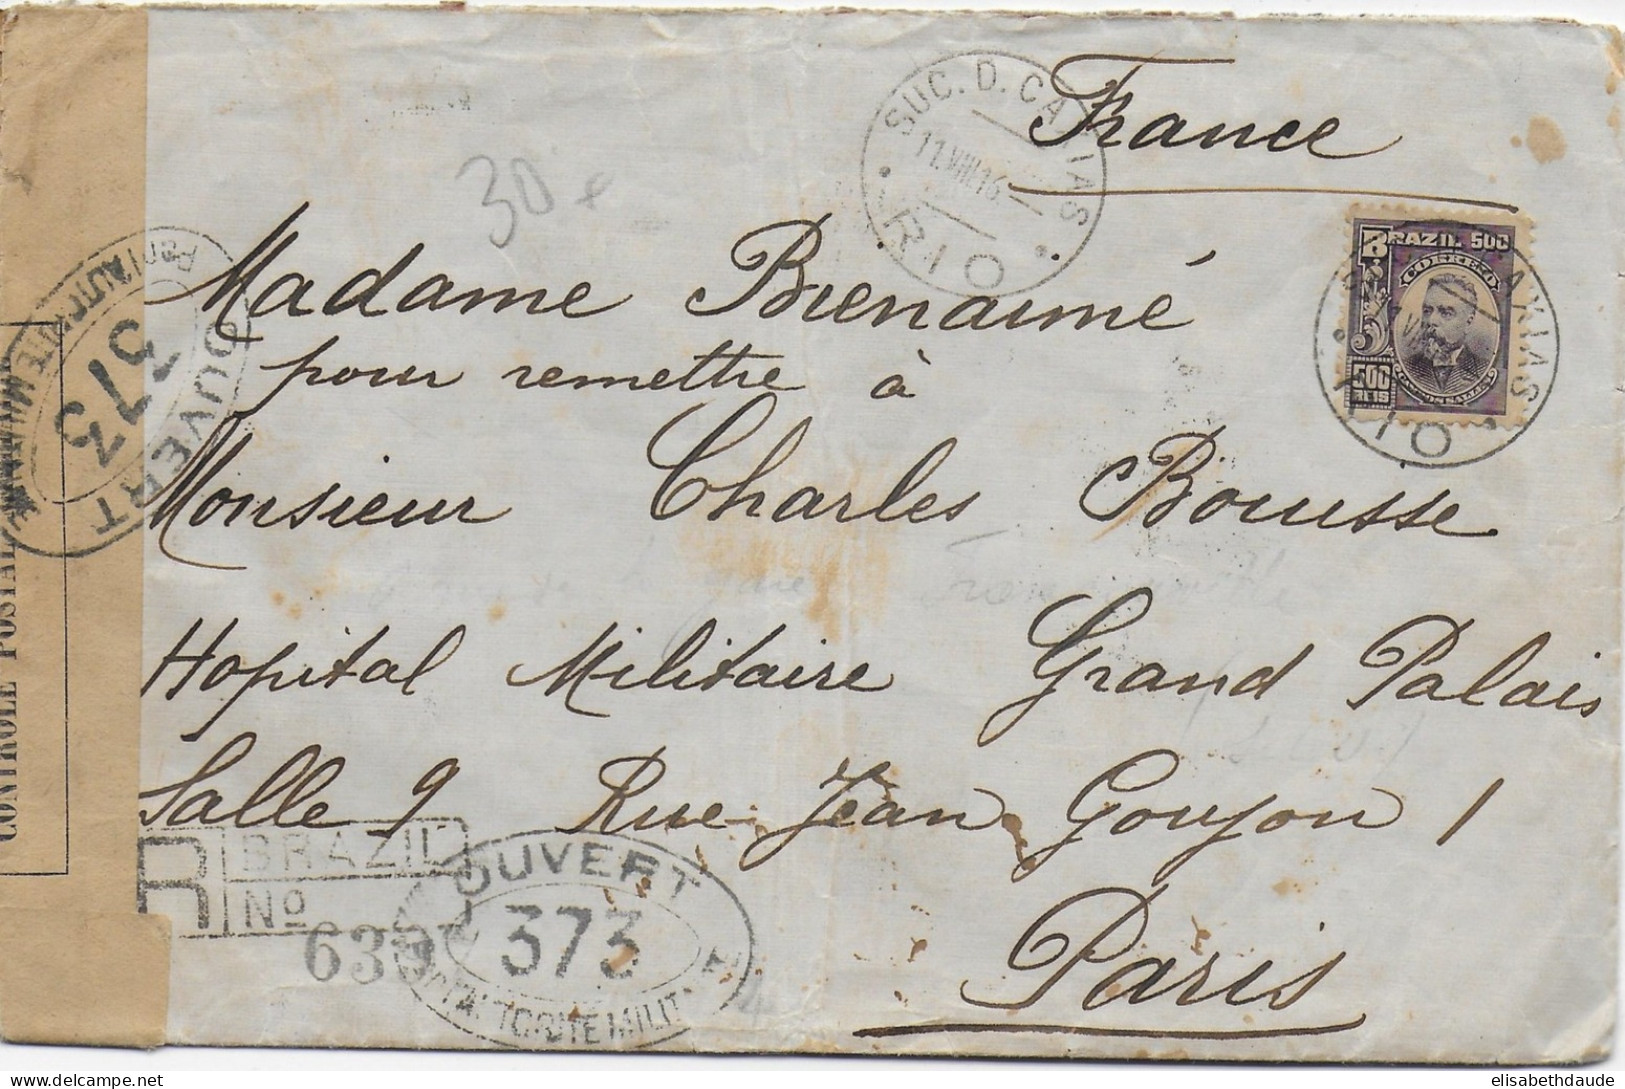 France
SUC. D. CAXIAS
11.VIII.16
RIO
30
BRAZIL 500
CORREIO
500
REIS
RIO
Madame Bienaimé
pour remettre à
Monsieur Charles Bouisse
Hopital Militaire Grand Palais
Salle 9 Rue Jean Goujon 1
Paris
OUVERT
373
PAR L'AUTORITE MILITAIRE
CONTROLE POSTAL
R BRAZIL
Nº
639
OUVERT
373
AUTORITE MILITAIRE
elisabethdaude